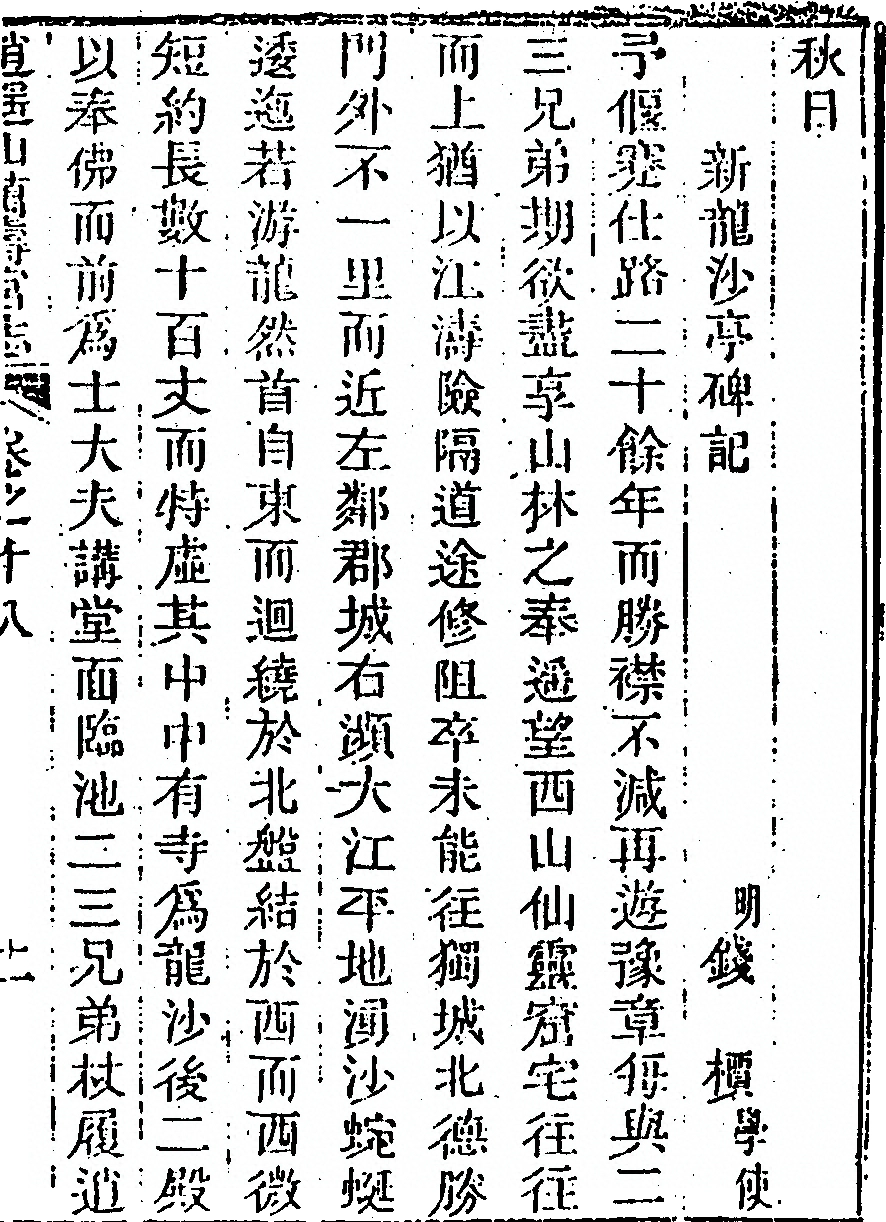 秋日
新龍沙亭碑記　明錢檟學使
予偃蹇仕路二十餘年而勝襟不減再遊豫章每與二
三兄弟期欲盡享山林之奉遥望西山仙靈窟宅往往
而上猶以江濤險隔道途修阻卒未能往獨城北德勝
門外不一里而近左鄰郡城右瀕大江平地湧沙蜿蜒
逶迤若游龍然首自東而迴繞於北盤結於西而西微
短約長數十百丈而特虛其中中有寺爲龍沙後二殿
以奉佛而前爲士大夫講堂面臨池二三兄弟杖履逍
逍遥山萬壽宮志　卷之十八　十一